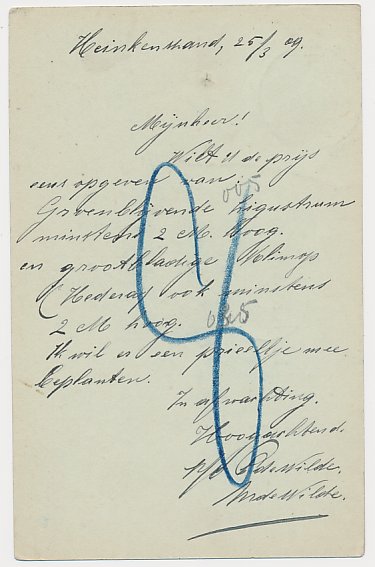 Heinkenszand, 25/3 09.
Mijnheer!
Wilt U de prijs
eens opgeven van
Groenblijvende ligustrum
minstens 2 M. hoog.
en grootbladige Klimop
(Hedera) ook minstens
2 M hoog.
Ik wil er een prieeltje mee
beplanten.
In afwachting
Hoogachtend.
p/o P de Wilde.
de Wilde.
005